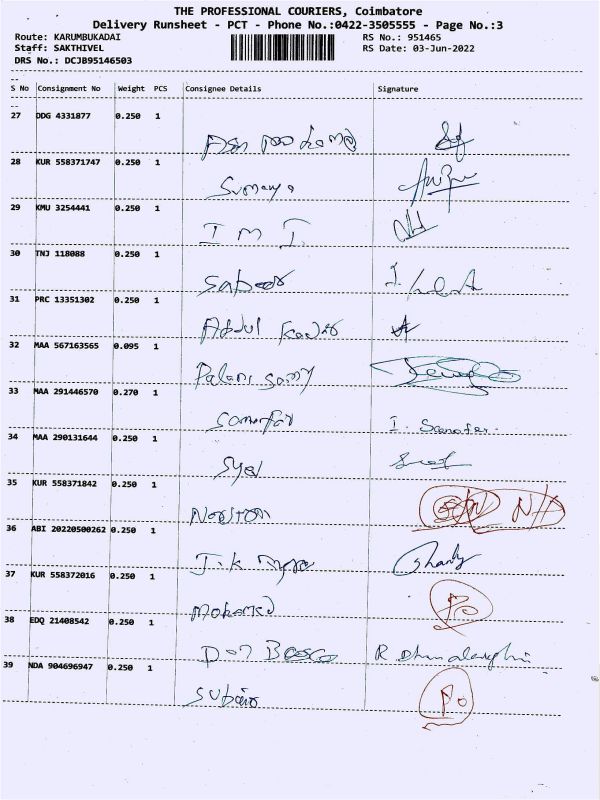 THE PROFESSIONAL COURIERS, Coimbatore
Delivery Runsheet - PCT - Phone No.:0422-3505555 - Page No.:3
Route: KARUMBUKADAI RS No.: 951465
Staff: SAKTHIVEL RS Date: 03-Jun-2022
DRS No.: DCJB95146503
S No Consignment No Weight PCS Consignee Details Signature
27 DDG 4331877 0.250 1
28 KUR 558371747 0.250 1
Sumaya
29 KMU 3254441 0.250 1
I M I.
30 TNJ 118088 0.250 1
Sabeer
31 PRC 13351302 0.250 1
Abdul Kader
32 MAA 567163565 0.095 1
Palani Samy
33 MAA 291446570 0.270 1
I Sanofar.
34 MAA 290131644 0.250 1
Syed
35 KUR 558371842 0.250 1
Newtom N/A
36 ABI 20220500262 0.250 1
J.K
37 KUR 558372016 0.250 1
Mohamed
38 EDQ 21408542 0.250 1
Don Bosco
39 NDA 904696947 0.250 1